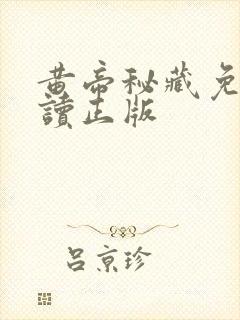 黄帝秘藏免
讀正版
吕京珍